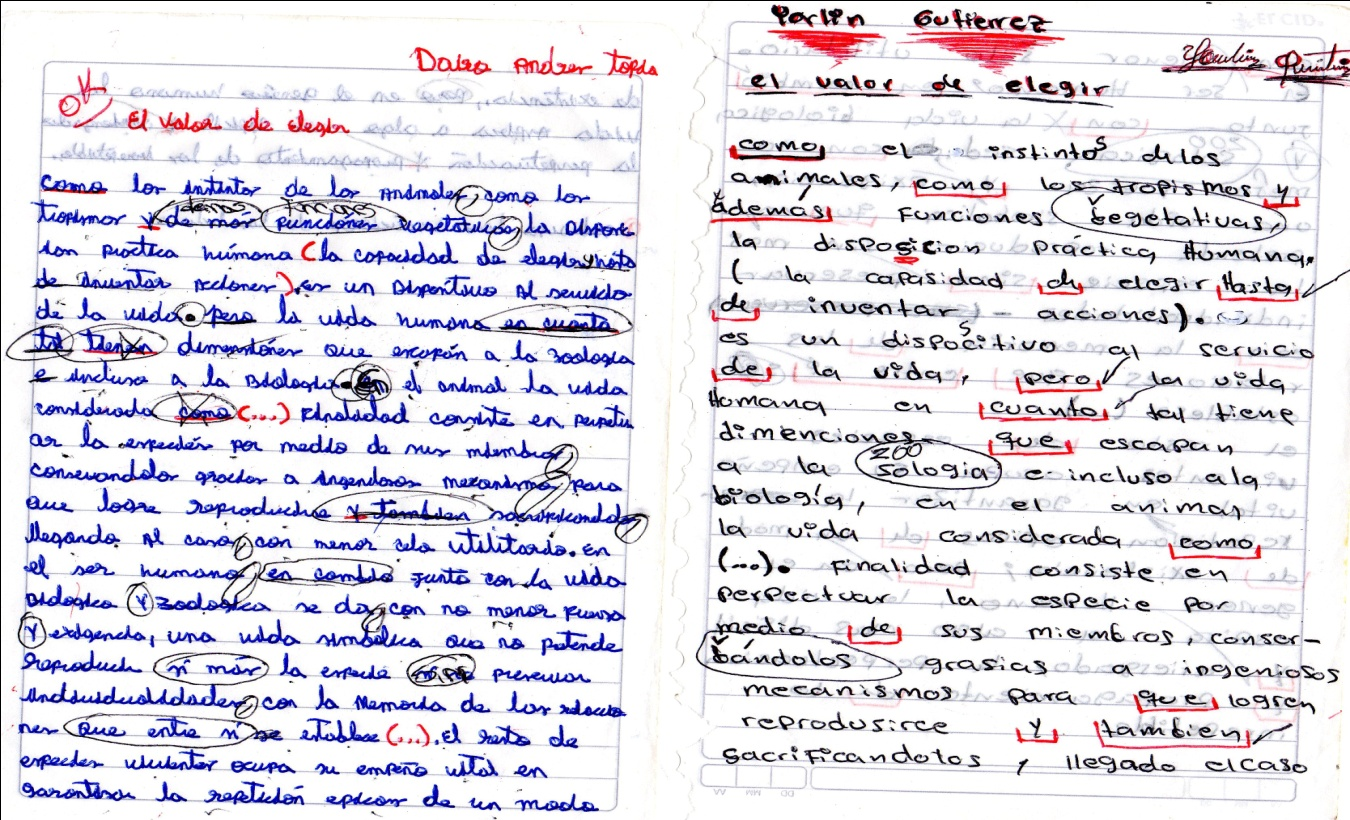 Andres
El valor de elegir
Como los instintos de los Animales, como los
tropismos y de más funciones vegetativas, la Disposi
cion practica húmana (la capacidad de elegir y hasta
de inventar Acciones), es un Dispositivo Al servicio
de la vida. pero la vida humana en cuanto
tal tienen dimensiónes que escapan a la zoología
e incluso a la Biologia. En el animal la vida
considerada como (...) Finalidad consiste en perpetu
ar la especies por medio de sus miembros
conservandolos gracias a ingeniosos mecanismos para
que logre reproducirse y tambien sacrificandolos
llegando Al caso, con menor celo utilitario. En
el ser humano, en cambio junto con la vida
Biologica y zoologica se da, con no menor fuerza
y exigencia, una vida simbolica que no pretende
reproducir ni más la especie preservar
individualidades, con la Memoria de las relacio
nes que entre si se establece (...). El resto de
especies vivientes ocupa su empeño vital en
garantizar la repetición de un modo
Yorlin Gutierrez
el valor de elegir
como el instintos de los
animales, como los tropismos y
además funciones begetativas,
la disposicion práctica Humana,
( la capasidad de elegir Hasta
de inventar - acciones).
es un dispocitivo al servicio
de la vida, pero la vida
Humana en cuanto tal tiene
dimenciones que escapan
a la zoo sología e incluso ala
biología, en el animal
la vida considerada como
(...). Finalidad consiste en
perpectuar la especie por
medio de sus miembros, conser-
bándolos grasias a ingeniosos
mecanismos para que logren
reprodusirce y tambien
sacrificandolos, llegado el caso